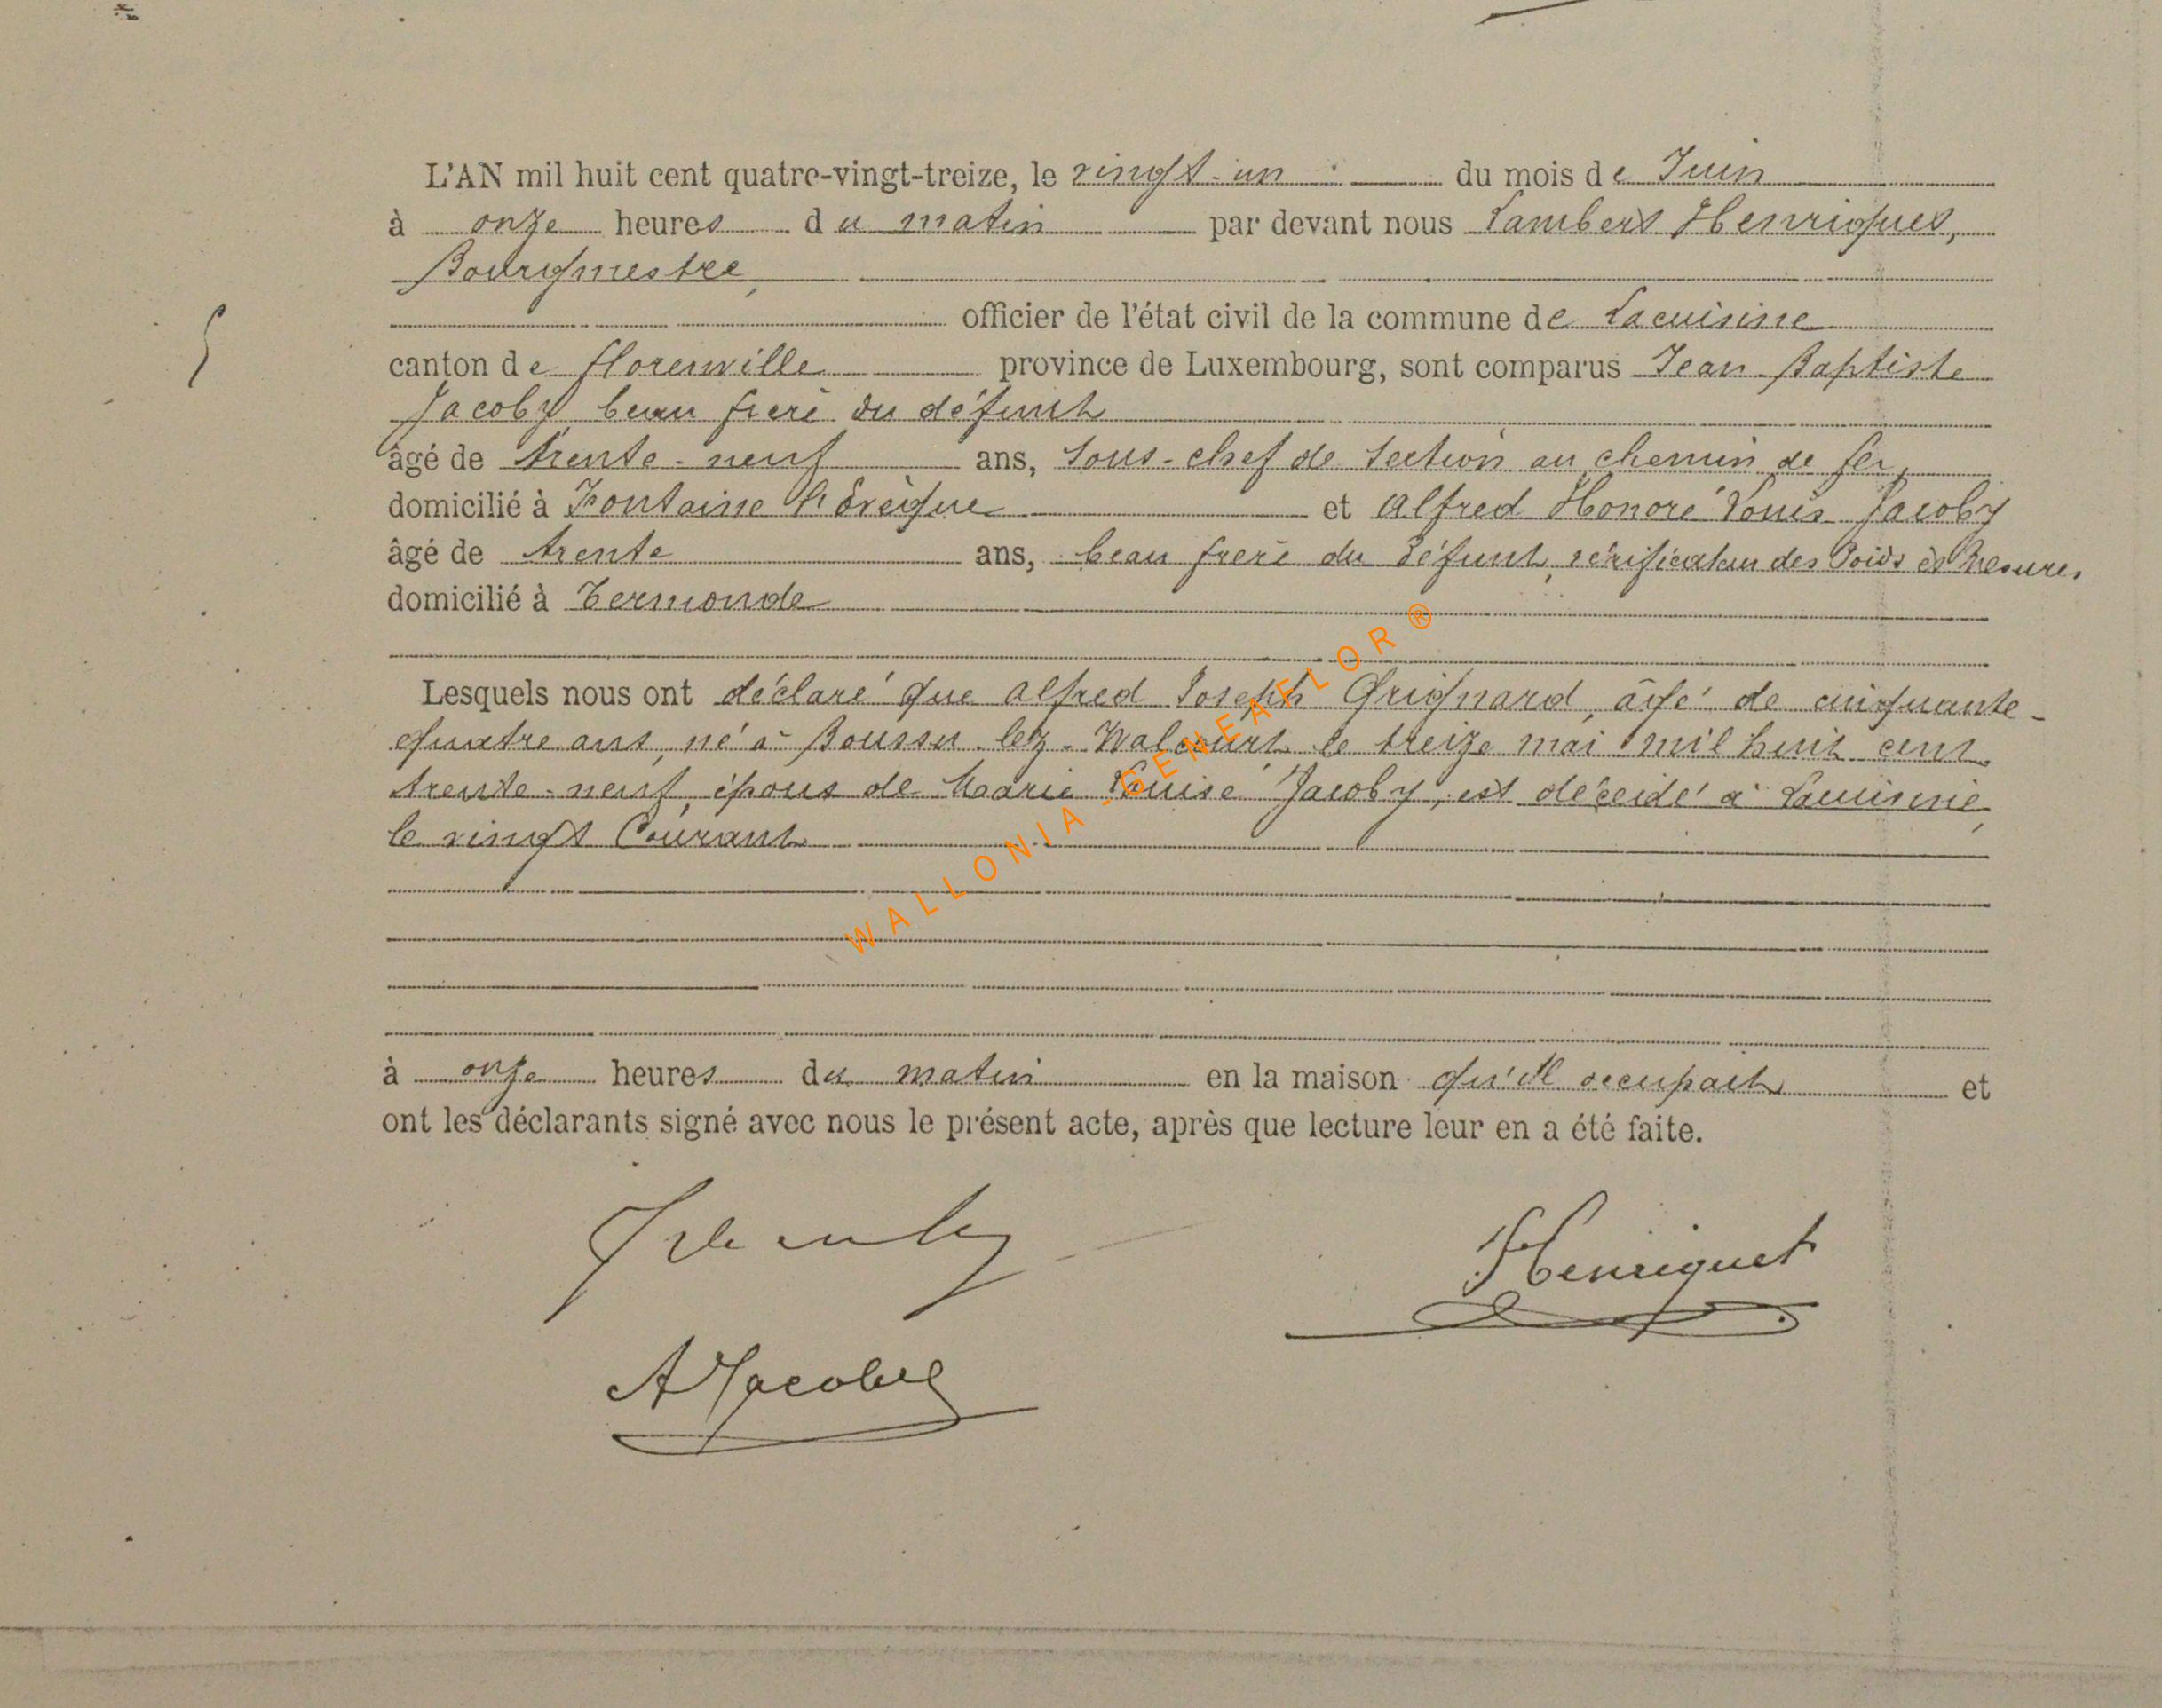 L'AN mil huit cent quatre-vingt-treize, le vingt-un du mois de Juin
à onze heures du matin par devant nous Lambert Henriquet,
Bourgmestre,
officier de l'état civil de la commune de Lacuisine
5
canton de florenville province de Luxembourg, sont comparus Jean Baptiste
Jacoby beau frere du défunt
âgé de trente-neuf ans, Sous-chef de Section au chemin de fer,
domicilié à Fontaine l'Evêque et Alfred Honoré Louis Jacoby
âgé de trente ans, beau frere du défunt, vérificateur des Poids et Mesures
domicilié à Termonde
Lesquels nous ont déclaré que Alfred Joseph Grignard, âgé de cinquante-
quatre ans, né à Boussu-lez-Walcourt le treize mai mil huit cent
trente-neuf, époux de Marie Louise Jacoby, est décédé à Lacuisine,
le vingt Courant
à onze heures du matin en la maison qu'il occupait et
ont les déclarants signé avec nous le présent acte, après que lecture leur en a été faite.
Henriquet
AJacoby
WALLONIA-GENEAFLOR®